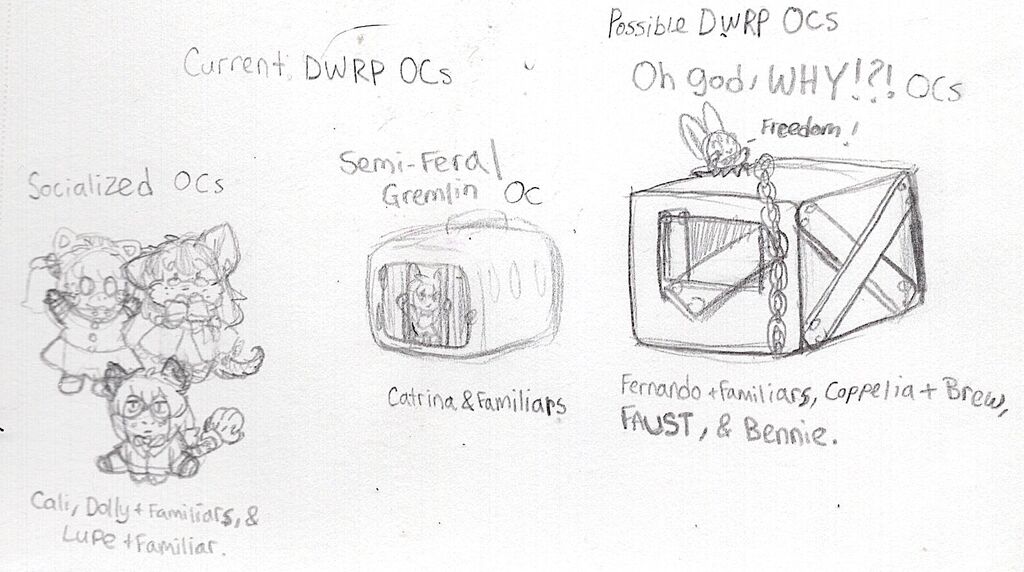 Possible DWRP OCs
Current DWRP OCs
Oh god, WHY!?! OCs
Freedom!
Semi-Feral
Gremlin OC
Socialized OCs
Catrina & Familiars
Fernando + Familiars, Coppelia + Brew,
FAUST, & Bennie.
Cali, Dolly + Familiars, &
Lupe + Familiar.